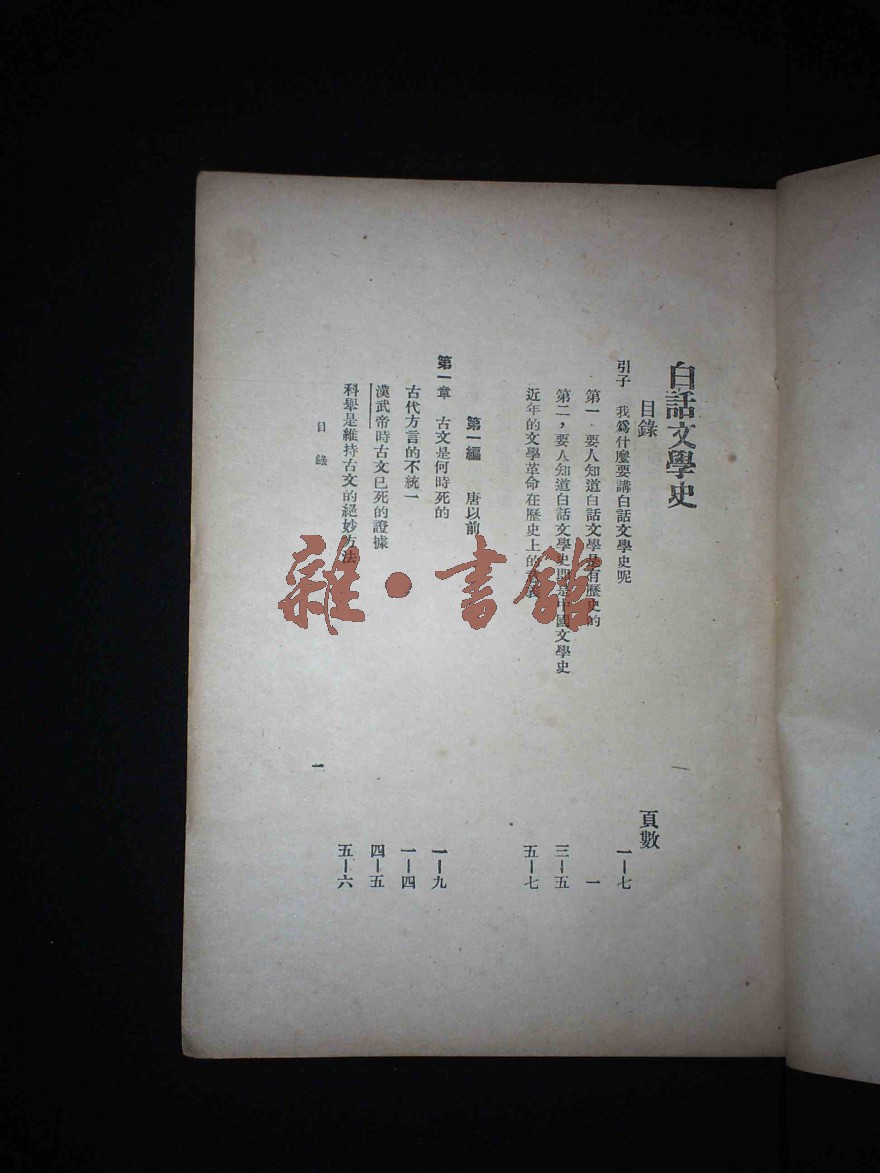 白話文學史
目錄 頁數
引子 我爲什麼要講白話文學史呢 一—七
第一，要人知道白話文學是有歷史的 一
第二，要人知道白話文學史即是中國文學史 三—五
近年的文學革命在歷史上的意義 五—七
第一編 唐以前
第一章 古文是何時死的 一—九
古代方言的不統一 一—四
漢武帝時古文已死的證據 四—五
科舉是維持古文的絕妙方法 五—六
目錄 一
雜·書館